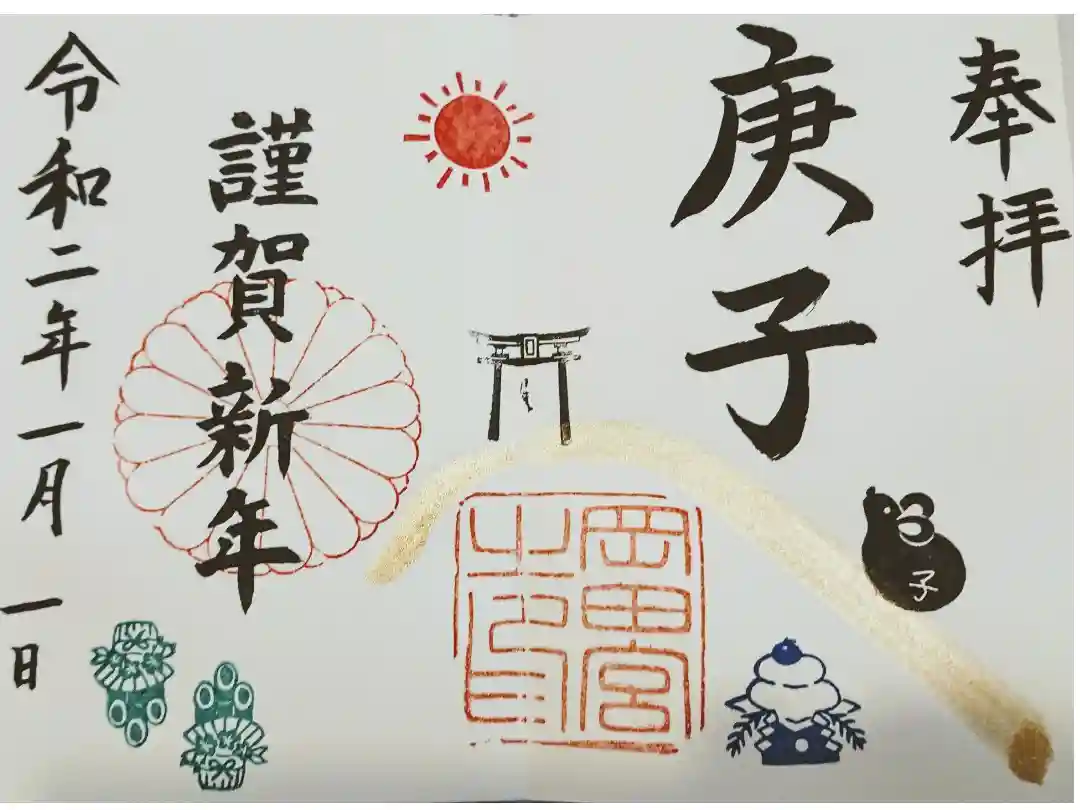 奉拝
庚子
子
岡田宮
之印
謹賀新年
令和二年一月一日